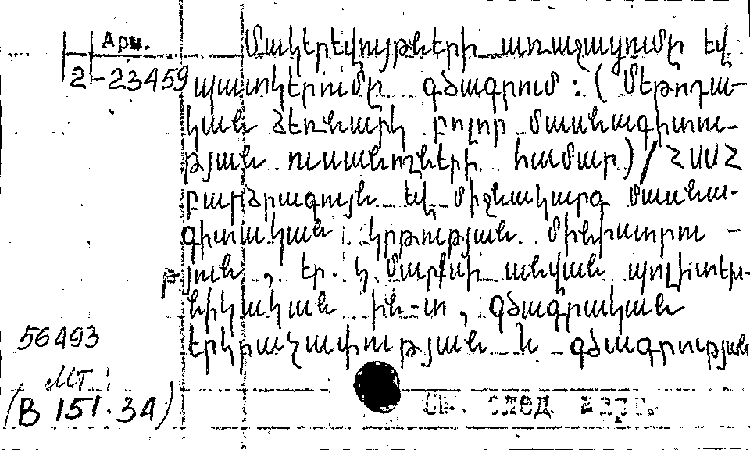 Арм.
2-23459
Մակերևույթների առաջացումը եվ
պատկերումը գծագրում: (Մեթոդա-
կան ձեռնարկ բոլոր մասնագիտու-
թյան ուսանողների համար) / ՀՍՍՀ
բարձրագույն եվ միջնակարգ մասնա-
գիտական կրթության մինիստրու-
թյուն, Եր. Կ. Մարքսի անվան պոլիտեխ-
նիկական ին-տ, գծագրական
երկրաչափության և գծագրության
56493
МТ
(В 151.34)
См. след. карт.